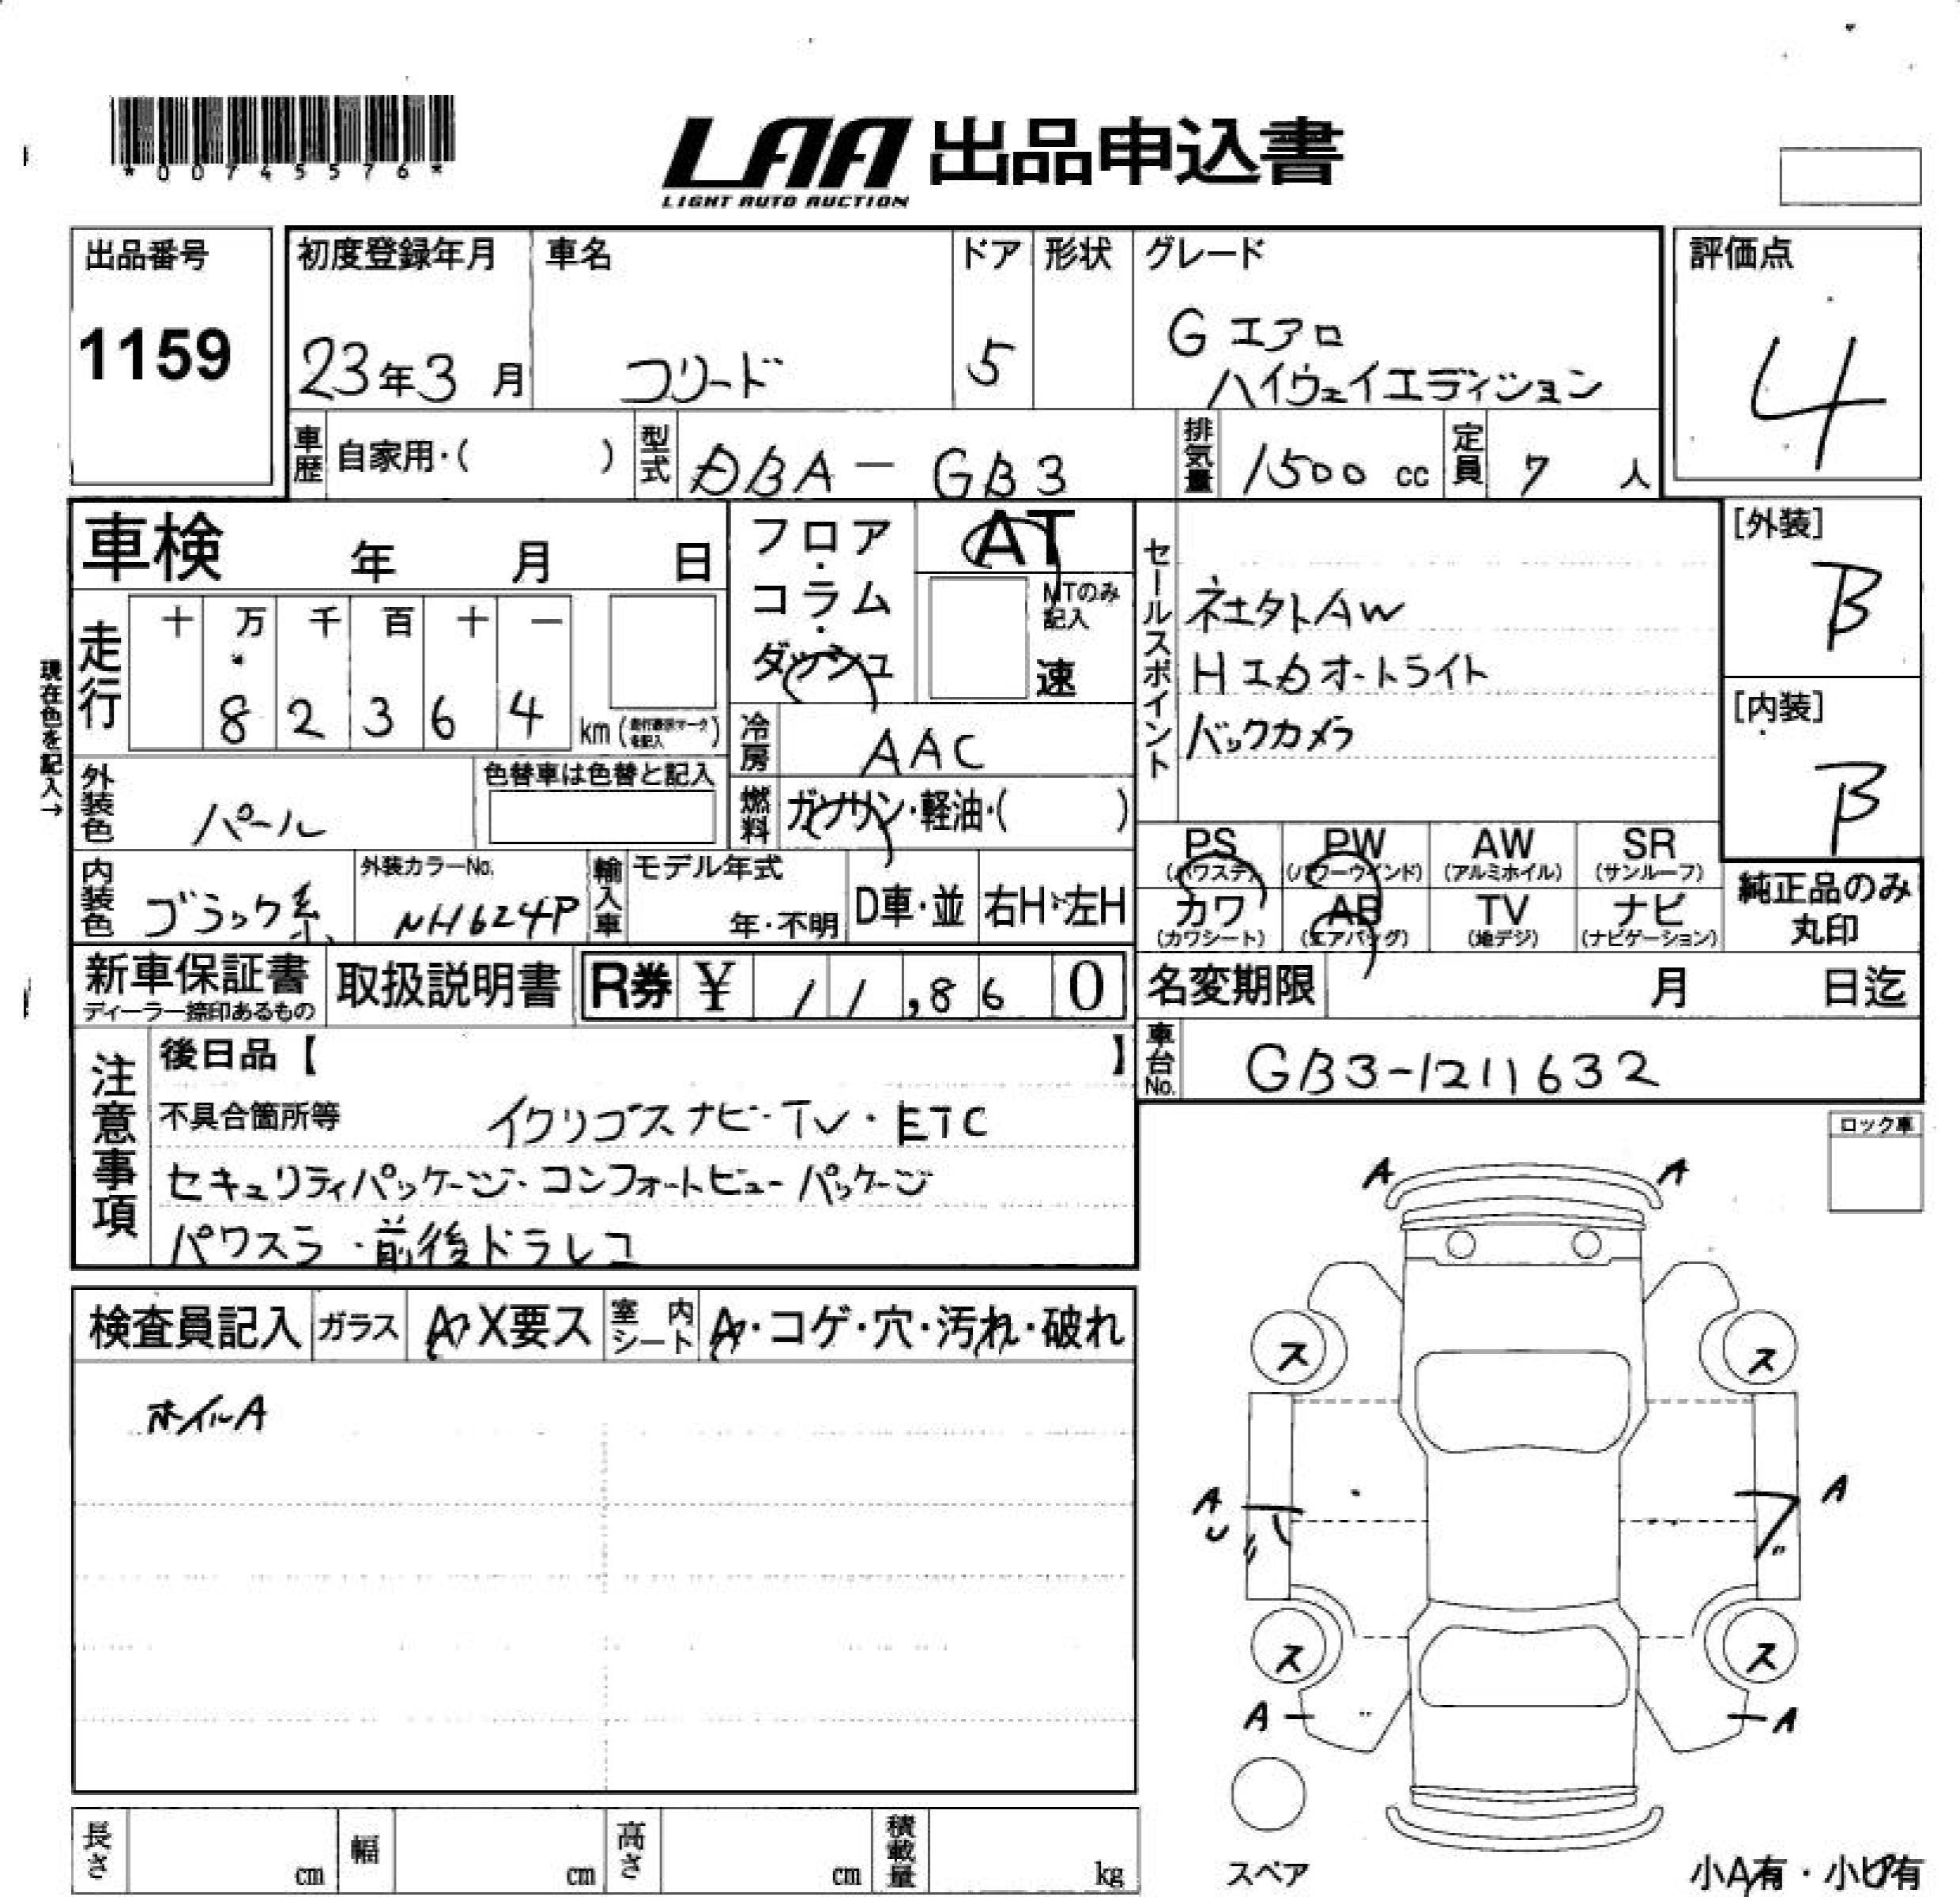 *00745576*
LAA 出品申込書
LIGHT AUTO AUCTION
出品番号
1159
初度登録年月
23年3月
車名
フリード
ドア
5
形状
グレード
G エアロ
ハイウェイエディション
評価点
4
車歴 自家用・( )
型式 DBA-GB3
排気量 1500 cc
定員 7 人
車検 年 月 日
走行
十 万 千 百 十 一
8 2 3 6 4 km
現在色を記入→
フロア・コラム・ダッシュ
AT
MTのみ記入
速
冷房 AAC
燃料 ガソリン・軽油・( )
セールスポイント
AW
オートライト
バックカメラ
[外装]
B
[内装]
B
外装色 パール
色替車は色替と記入
内装色 ブラック系
外装カラーNo.
NH624P
輸入車 モデル年式
年・不明
D車・並
右H・左H
PS (パワステ)
PW (パワーウインド)
AW (アルミホイル)
SR (サンルーフ)
カワ (カワシート)
AB (エアバッグ)
TV (地デジ)
ナビ (ナビゲーション)
純正品のみ
丸印
新車保証書
ディーラー捺印あるもの
取扱説明書
R券 ¥ 11,860
名変期限 月 日迄
車台No. GB3-1211632
注意事項
後日品【 】
不具合箇所等 イクリプスナビ・TV・ETC
セキュリティパッケージ・コンフォートビューパッケージ
パワスラ・前後ドラレコ
ロック車
検査員記入
ガラス
A X要ス
室内シート
A・コゲ・穴・汚れ・破れ
ホイルA
A A
ス ス
A A
ス ス
A A
スペア
小A有・小U有
長さ cm
幅 cm
高さ cm
積載量 kg